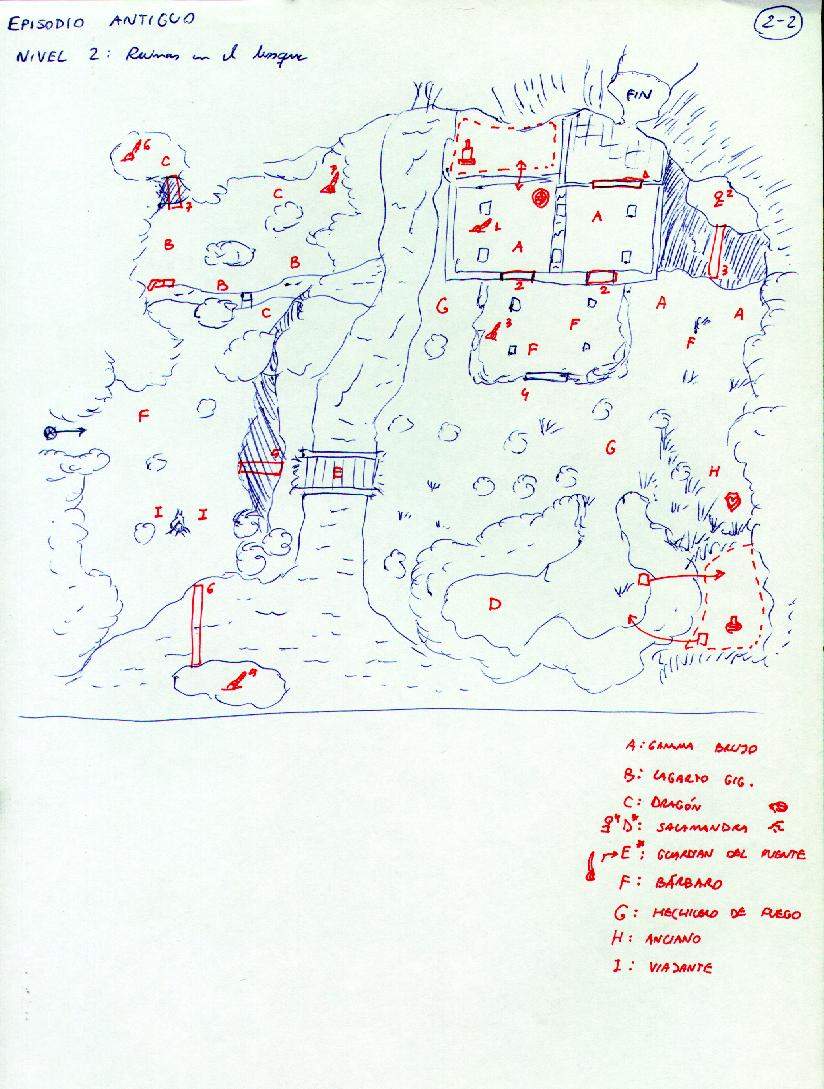 EPISODIO ANTIGUO
2-2
NIVEL 2: Ruinas en el bosque
FIN
6
C
7
C
7
B
B
B
C
1
A
1
A
2
3
2
2
G
3
F
F
A
A
F
4
F
5
E
G
H
I
I
D
6
4
A: GAMMA BRUJO
B: LAGARTO GIG.
C: DRAGÓN
D*: SALAMANDRA
E*: GUARDIAN DEL PUENTE
F: BÁRBARO
G: HECHICERO DE FUEGO
H: ANCIANO
I: VIAJANTE